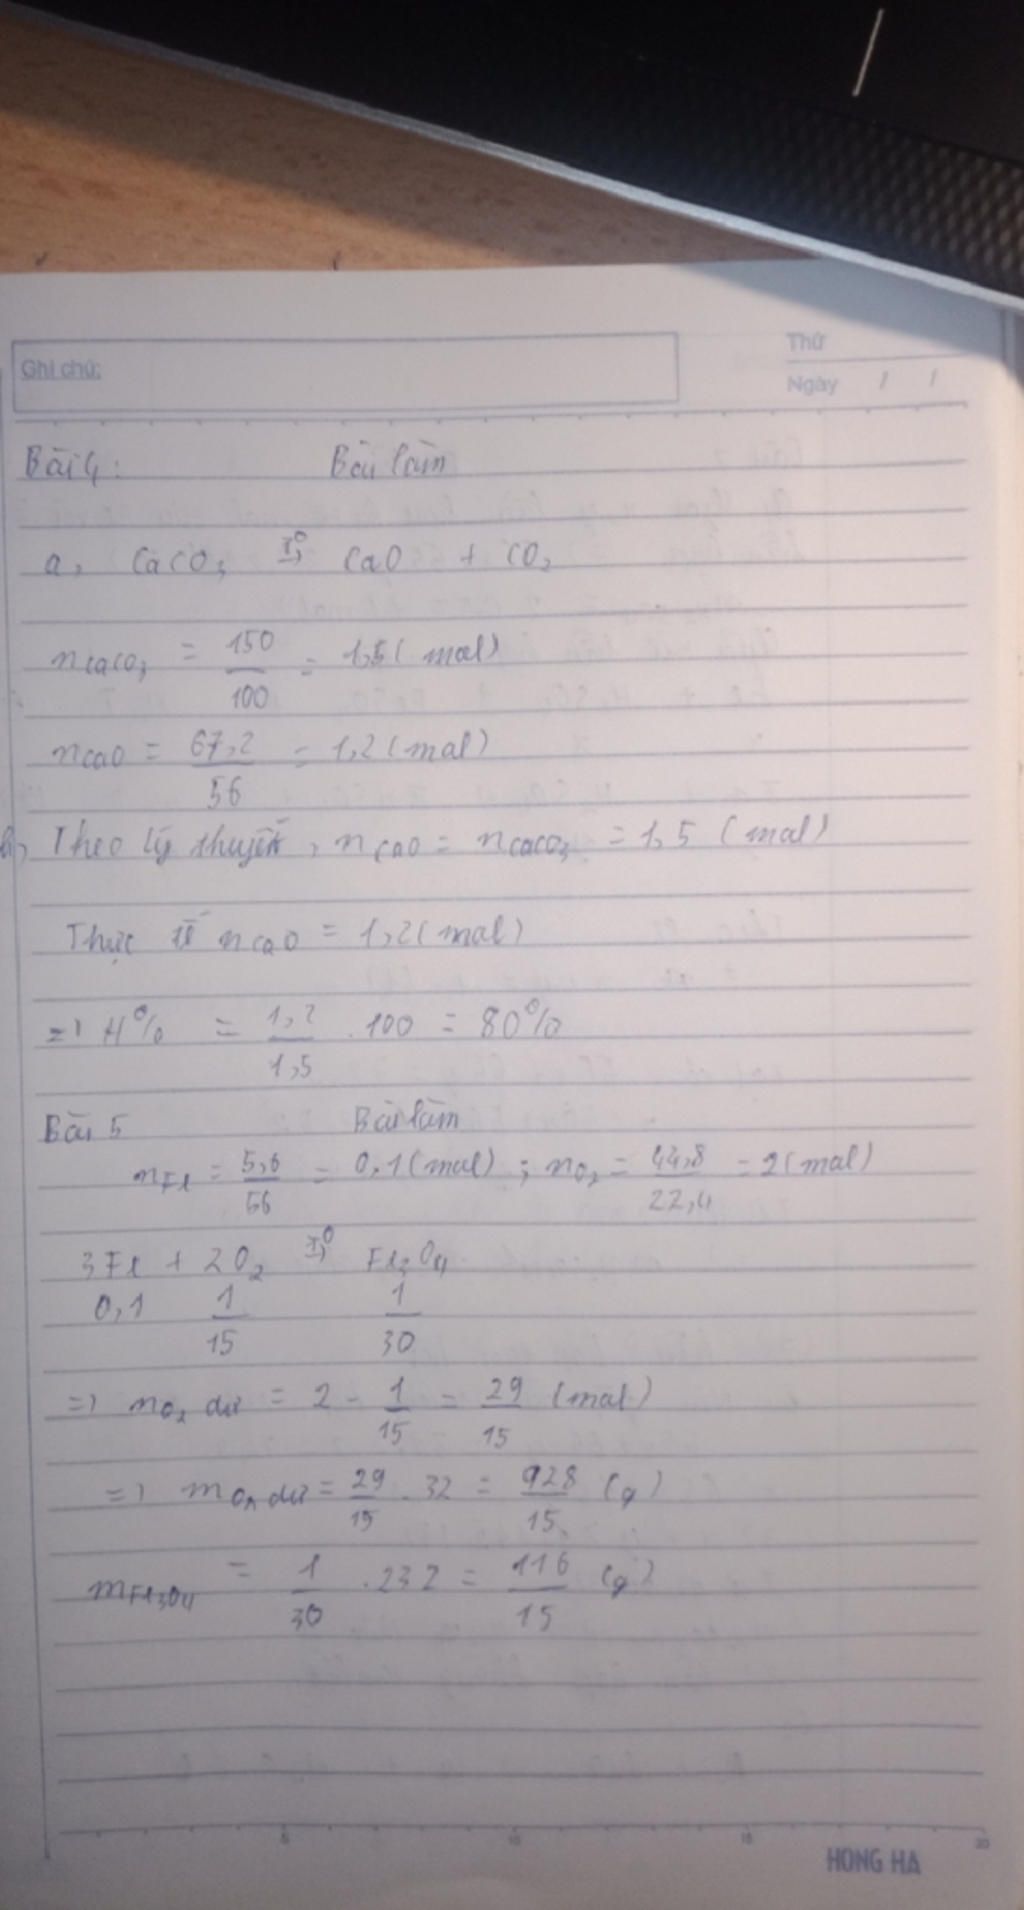 Ghi chú:
Thứ
Ngày / /
Bài 4: Bài làm
a, CaCO3 t°→ CaO + CO2
nCaCO3 = 150/100 = 1,5 (mol)
nCaO = 67,2/56 = 1,2 (mol)
b, Theo lý thuyết, nCaO = nCaCO3 = 1,5 (mol)
Thực tế nCaO = 1,2 (mol)
=> H% = 1,2/1,5 . 100 = 80%
Bài 5 Bài làm
nFe = 5,6/56 = 0,1 (mol) ; nO2 = 44,8/22,4 = 2 (mol)
3Fe + 2O2 t°→ Fe3O4
0,1 1/15 1/30
=> nO2 dư = 2 - 1/15 = 29/15 (mol)
=> mO2 dư = 29/15 . 32 = 928/15 (g)
mFe3O4 = 1/30 . 232 = 116/15 (g)
5 10 15 20
HONG HA